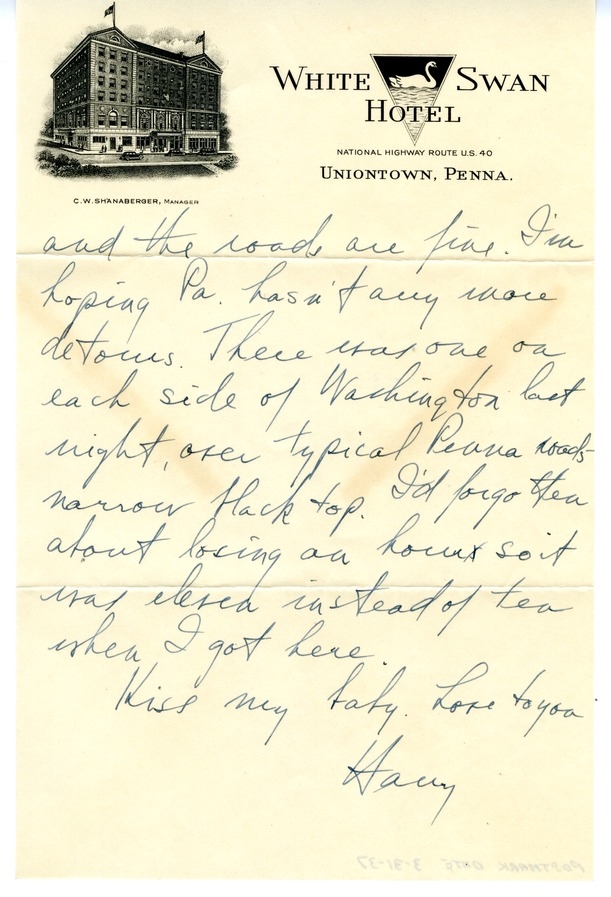 WHITE SWAN
HOTEL
NATIONAL HIGHWAY ROUTE U.S. 40
UNIONTOWN, PENNA.
C.W. SHANABERGER, MANAGER
and the roads are fine. I'm
hoping Pa. hasn't any more
detours. There was one on
each side of Washington last
night, over typical Penna roads-
narrow black top. I'd forgotten
about losing an hour so it
was eleven instead of ten
when I got here.
Kiss my baby. Love to you
Harry
POSTMARK DATE 3-31-37